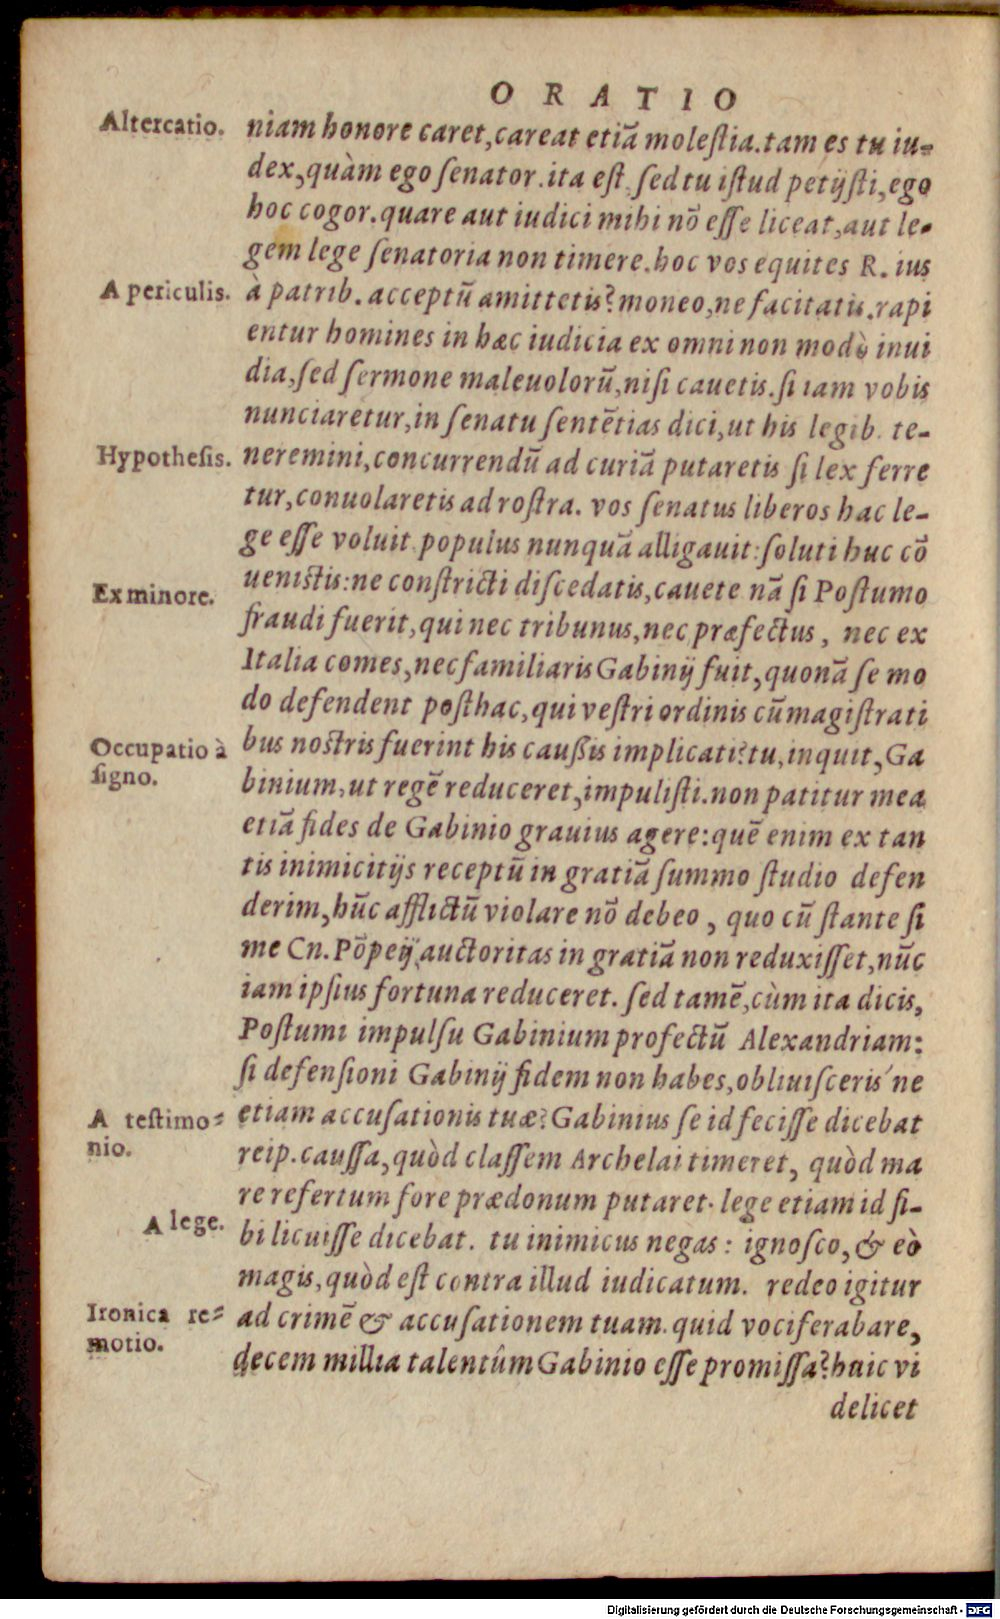 ORATIO
Altercatio.
niam honore caret, careat etiã molestia. tam es tu iu-
dex, quàm ego senator. ita est. sed tu istud petijsti, ego
hoc cogor. quare aut iudici mihi nõ esse liceat, aut le-
gem lege senatoria non timere. hoc vos equites R. ius
A periculis.
à patrib. acceptũ amittetis? moneo, ne faciatis. rapi
entur homines in hæc iudicia ex omni non modò inui
dia, sed sermone maleuolorũ, nisi cauetis. si iam vobis
nunciaretur, in senatu sentẽtias dici, ut his legib. te-
Hypothesis.
neremini, concurrendũ ad curiã putaretis si lex ferre
tur, conuolaretis ad rostra. vos senatus liberos hac le-
ge esse voluit. populus nunquã alligauit: soluti huc cõ
Ex minore.
uenistis: ne constricti discedatis, cauete nã si Postumo
fraudi fuerit, qui nec tribunus, nec præfectus, nec ex
Italia comes, nec familiaris Gabinij fuit, quonã se mo
do defendent posthac, qui vestri ordinis cũ magistrati
Occupatio à
signo.
bus nostris fuerint his caussis implicati? tu, inquit, Ga
binium, ut regẽ reduceret, impulisti. non patitur mea
etiã fides de Gabinio grauius agere: quẽ enim ex tan
tis inimicitijs receptũ in gratiã summo studio defen
derim, hũc afflictũ violare nõ debeo, quo cũ stante si
me Cn. Põpeij auctoritas in gratiã non reduxisset, nũc
iam ipsius fortuna reduceret. sed tamẽ, cùm ita dicis,
Postumi impulsu Gabinium profectũ Alexandriam:
si defensioni Gabinij fidem non habes, obliuisceris ne
A testimo-
nio.
etiam accusationis tuæ? Gabinius se id fecisse dicebat
reip. caussa, quòd classem Archelai timeret, quòd ma
re refertum fore prædonum putaret. lege etiam id si-
A lege.
bi licuisse dicebat. tu inimicus negas: ignosco, & eò
magis, quòd est contra illud iudicatum. redeo igitur
Ironica re-
motio.
ad crimẽ & accusationem tuam. quid vociferabare,
decem millia talentûm Gabinio esse promissa? huic vi
delicet
Digitalisierung gefördert durch die Deutsche Forschungsgemeinschaft - DFG